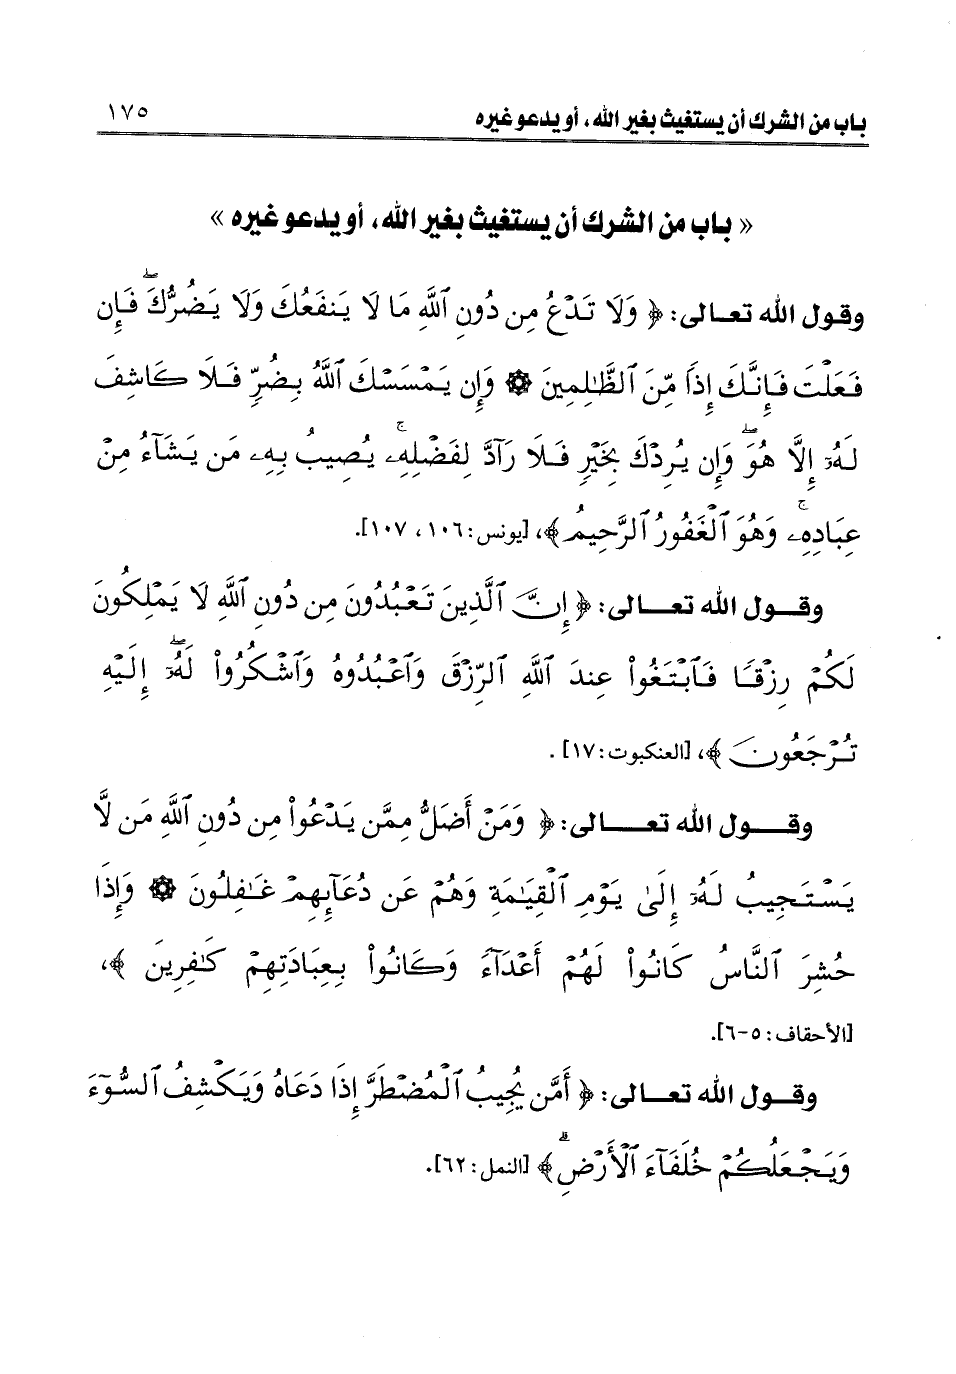 باب من الشرك أن يستغيث بغير الله، أو يدعو غيره ١٧٥
« باب من الشرك أن يستغيث بغير الله، أو يدعو غيره »
وقول الله تعالى: ﴿ وَلَا تَدْعُ مِن دُونِ ٱللَّهِ مَا لَا يَنفَعُكَ وَلَا يَضُرُّكَۖ فَإِن
فَعَلْتَ فَإِنَّكَ إِذًا مِّنَ ٱلظَّٰلِمِينَ ۞ وَإِن يَمْسَسْكَ ٱللَّهُ بِضُرٍّ فَلَا كَاشِفَ
لَهُۥٓ إِلَّا هُوَۖ وَإِن يُرِدْكَ بِخَيْرٍ فَلَا رَآدَّ لِفَضْلِهِۦۚ يُصِيبُ بِهِۦ مَن يَشَآءُ مِنْ
عِبَادِهِۦۚ وَهُوَ ٱلْغَفُورُ ٱلرَّحِيمُ ﴾، [يونس: ١٠٦، ١٠٧].
وقول الله تعالى: ﴿ إِنَّ ٱلَّذِينَ تَعْبُدُونَ مِن دُونِ ٱللَّهِ لَا يَمْلِكُونَ
لَكُمْ رِزْقًا فَٱبْتَغُوا۟ عِندَ ٱللَّهِ ٱلرِّزْقَ وَٱعْبُدُوهُ وَٱشْكُرُوا۟ لَهُۥٓۖ إِلَيْهِ
تُرْجَعُونَ ﴾، [العنكبوت: ١٧] .
وقول الله تعالى: ﴿ وَمَنْ أَضَلُّ مِمَّن يَدْعُوا۟ مِن دُونِ ٱللَّهِ مَن لَّا
يَسْتَجِيبُ لَهُۥٓ إِلَىٰ يَوْمِ ٱلْقِيَٰمَةِ وَهُمْ عَن دُعَآئِهِمْ غَٰفِلُونَ ۞ وَإِذَا
حُشِرَ ٱلنَّاسُ كَانُوا۟ لَهُمْ أَعْدَآءً وَكَانُوا۟ بِعِبَادَتِهِمْ كَٰفِرِينَ ﴾،
[الأحقاف: ٥-٦].
وقول الله تعالى: ﴿ أَمَّن يُجِيبُ ٱلْمُضْطَرَّ إِذَا دَعَاهُ وَيَكْشِفُ ٱلسُّوٓءَ
وَيَجْعَلُكُمْ خُلَفَآءَ ٱلْأَرْضِۗ ﴾ [النمل: ٦٢].